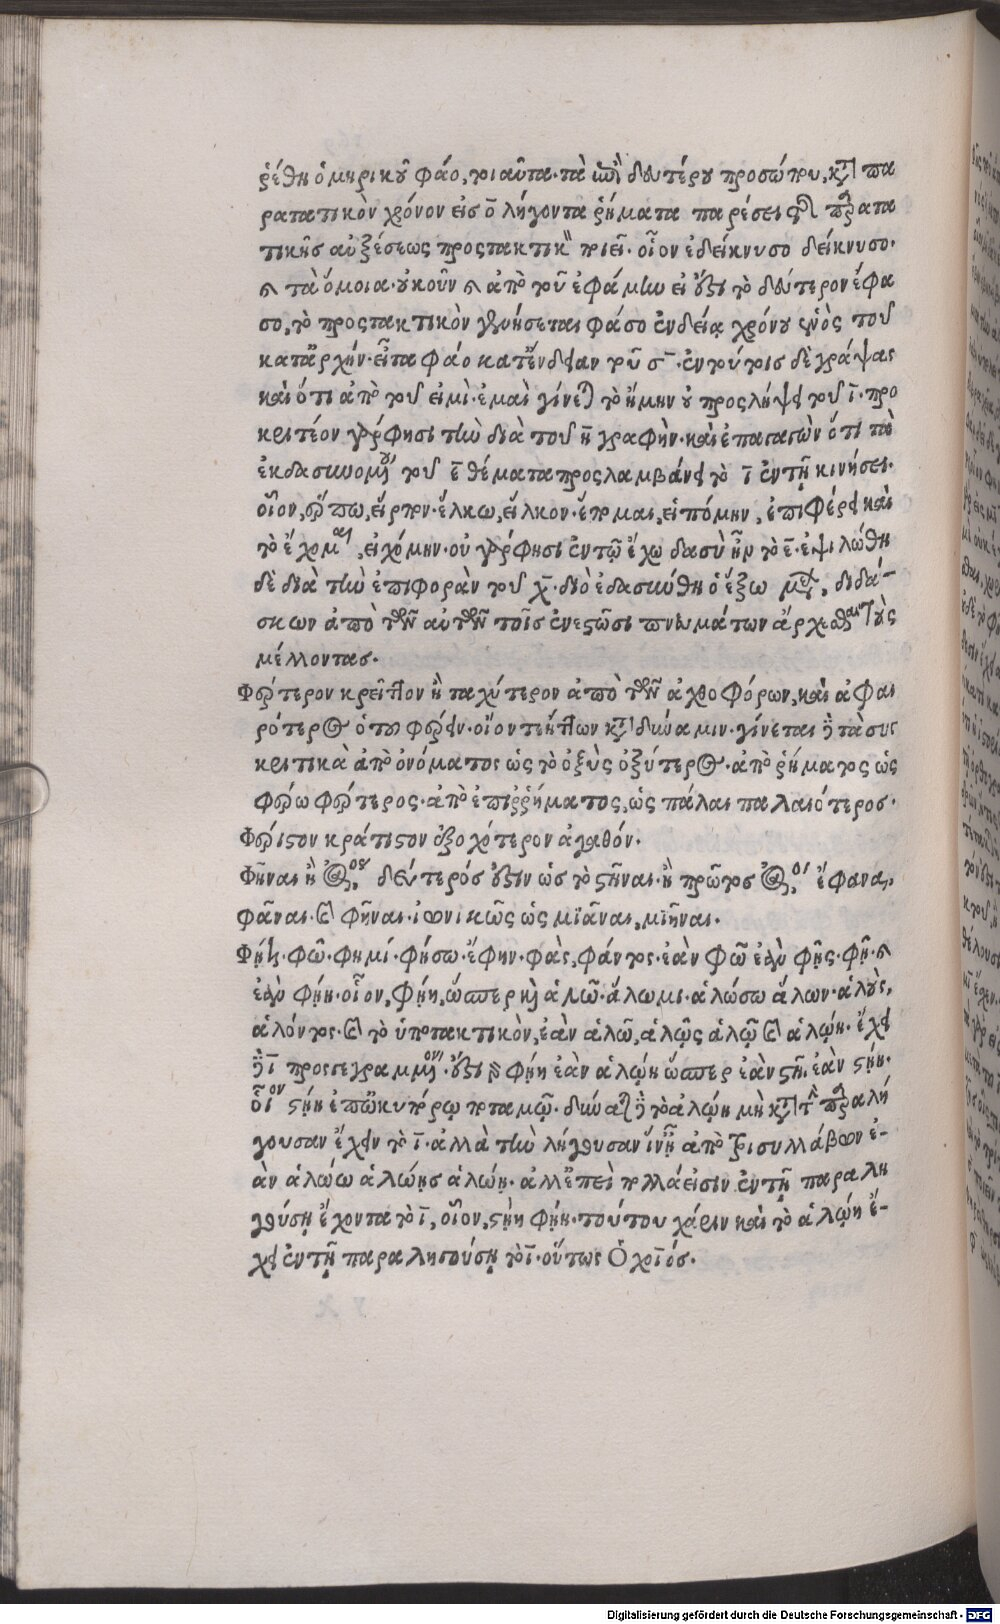 ῥέθη ὁμηρικοῦ φάο, τοιαῦτα· τὰ ἐπὶ δευτέρου προσώπου, κατὰ πα
ρατατικὸν χρόνον εἰς ο λήγοντα ῥήματα παρέσει παρατα
τικῆς αὐξέσεως προστακτικὰ ποιεῖ· οἷον ἐδείκνυσο δείκνυσο·
καὶ τὰ ὅμοια· οὐκοῦν καὶ ἀπὸ τοῦ ἐφάμην εἰ ἔστι τὸ δεύτερον ἔφα
σο, τὸ προστακτικὸν γενήσεται φάσο ἐνδείᾳ χρόνου ἑνὸς τοῦ
κατἀρχήν· εἶτα φάο κατἔνδειαν τοῦ σ· ἐν τούτοις δὲ γράψας
καὶ ὅτι ἀπὸ τοῦ εἰμὶ· ἐμαὶ γίνεται τὸ ἤμην οὐ προσλήψει τοῦ ι· προ
κριτέον γάρ φησι τὴν διὰ τοῦ η γραφὴν· καὶ ἐπαπασῶν ὅτι τὰ
ἐκδασυνομένου τοῦ ε θέματα προσλαμβάνει τὸ ι ἐν τῇ κινήσει·
οἷον, ἕρπω, εἷρπον· ἕλκω, εἷλκον· ἕπομαι, εἱπόμην, ἐπιφέρει καὶ
τὸ ἔχομαι, εἰχόμην· οὐ γάρ φησι ἐν τῷ ἔχω δασὺ ἦν τὸ ε· ἐψιλώθη
δὲ διὰ τὴν ἐπιφορὰν τοῦ χ· διὸ ἐδασύνθη ὁ ἕξω μέλλων, διδά-
σκων ἀπὸ τῶν αὐτῶν τοῖς ἐνεστῶσι πνευμάτων ἄρχεσθαι τοὺς
μέλλοντας.
Φέρτερον κρεῖττον ἢ ταχύτερον ἀπὸ τῶν ἀχθοφόρων, καὶ ἀφαι
ρότερος ὁ τοῦ φέρειν· οἷον τε ἥττων κατὰ δύναμιν· γίνεται δὲ τὰ συγ
κριτικὰ ἀπὸ ὀνόματος ὡς τὸ ὀξὺς ὀξύτερος· ἀπὸ ῥήματος ὡς
φέρω φέρτερος· ἀπὸ ἐπιῤῥήματος, ὡς πάλαι παλαιότερος·
Φέριστον κράτιστον ἐξοχότερον ἀγαθόν.
Φῆναι ἢ ἀόριστος δεύτερός ἐστιν ὡς τὸ στῆναι· ἢ πρῶτος ἀόριστος ἔφανα,
φᾶναι· καὶ φῆναι· ἰωνικῶς ὡς μιᾶναι, μιῆναι.
Φήῃ· φῶ· φημί· φήσω· ἔφην· φὰς, φάντος· ἐὰν φῶ ἐὰν φῇς· φῇ· καὶ
ἐὰν φήῃ· οἷον, φήῃ, ὥσπερ καὶ ἁλῶ· ἅλωμι· ἁλώσω ἅλων· ἁλοὺς,
ἁλόντος· καὶ τὸ ὑποτακτικὸν, ἐὰν ἁλῶ, ἁλῷς ἁλῷ καὶ ἁλῴη· ἔχει
δὲ ι προσγεγραμμένον· ἔστι δὲ φήῃ ἐὰν ἁλῴη ὥσπερ ἐὰν στῇ· ἐὰν στήῃ·
οἷον στήῃ ἐπὠκυρόῳ ποταμῷ· δύναται δὲ τὸ ἁλῴη μὴ κατὰ τὴν παραλή
γουσαν ἔχειν τὸ ι· ἀλλὰ τὴν λήγουσαν ἵν' ᾖ ἀπὸ τρισυλλάβων ἐ-
ὰν ἁλώω ἁλώῃς ἁλώῃ· ἀλλ' ἐπεὶ πολλά εἰσιν ἐν τῇ παραλη
γούσῃ ἔχοντα τὸ ι, οἷον, στήῃ φήῃ· τούτου χάριν καὶ τὸ ἁλῴη ἔ-
χει ἐν τῇ παραληγούσῃ τὸ ι· οὕτως Ὁ χῖος.
Digitalisierung gefördert durch die Deutsche Forschungsgemeinschaft - DFG